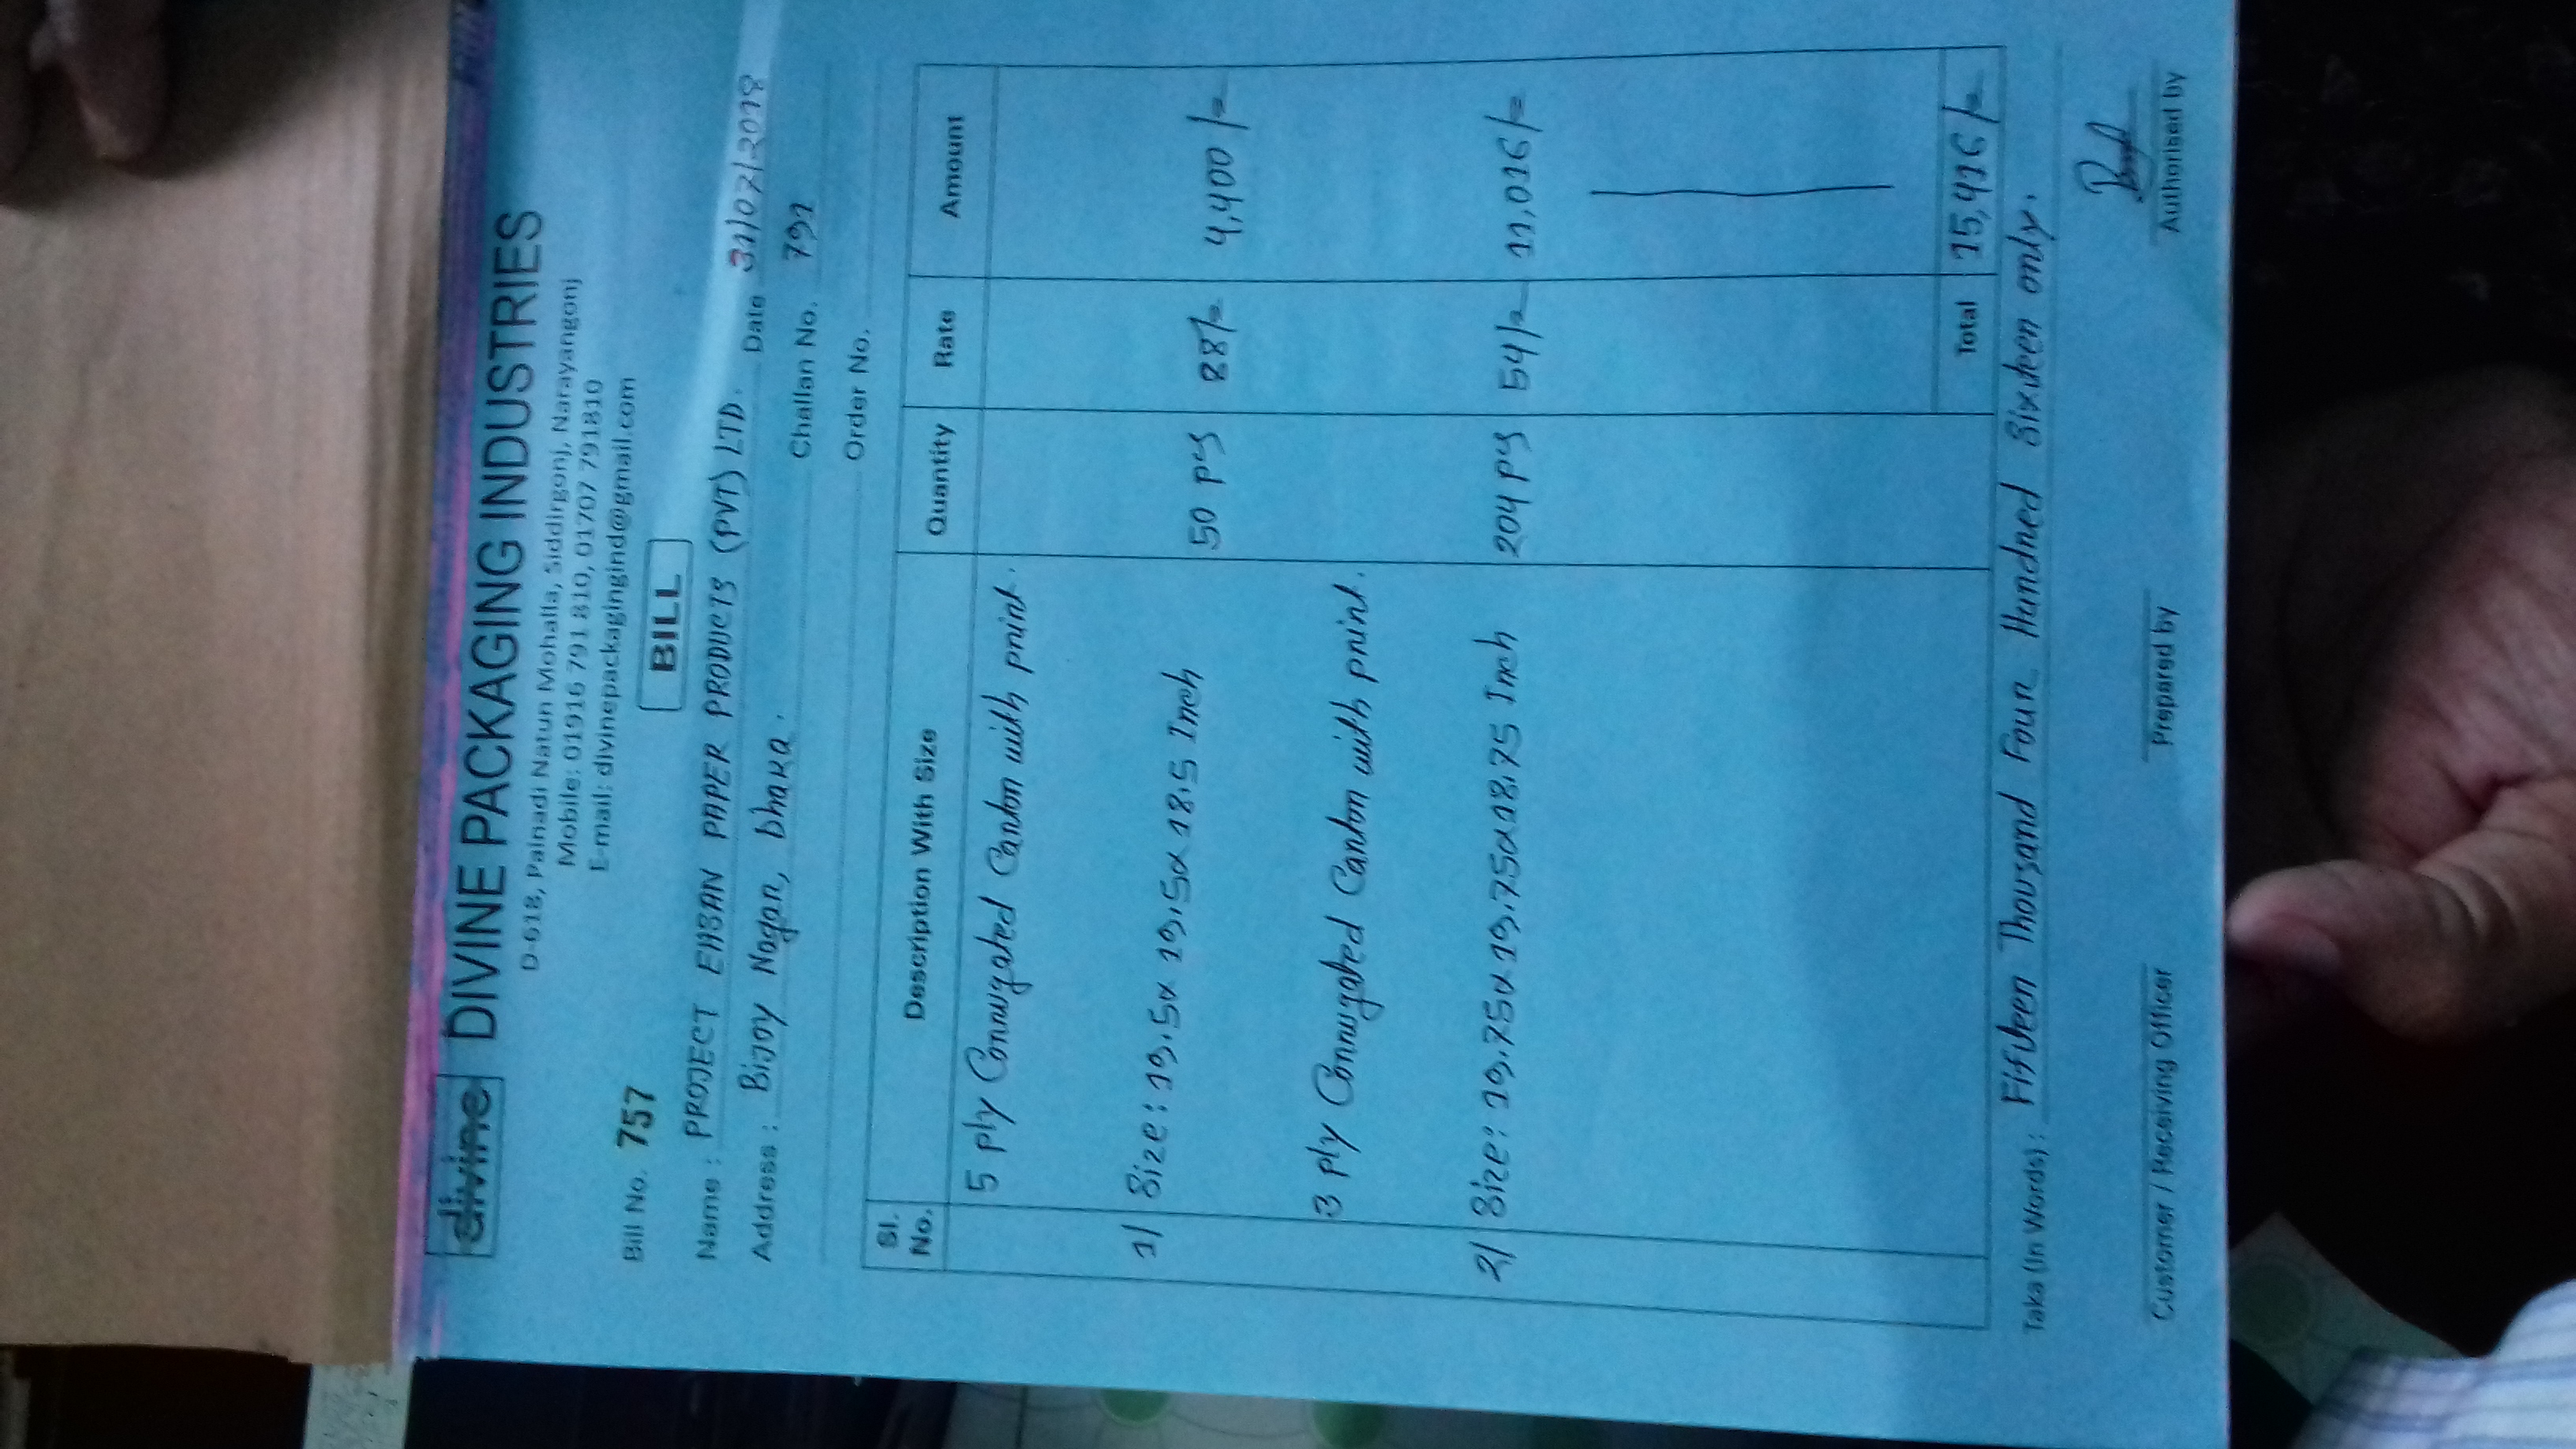 divine DIVINE PACKAGING INDUSTRIES
D-618, Painadi Natun Mohalla, Siddirgonj, Narayangonj
Mobile: 01916 791 810, 01707 791810
E-mail: divinepackagingind@gmail.com
Bill No. 757
BILL
Name : PROJECT EHSAN PAPER PRODUCTS (PVT) LTD. Date 31/07/2018
Address : Bijoy Nagar, Dhaka. Challan No. 791
Order No.
Sl. No. Description With Size Quantity Rate Amount
5 ply Corrugated Carton with print.
1/ Size: 19.5x 19.5x 18.5 Inch 50 pcs 88/= 4,400/=
3 ply Corrugated Carton with print.
2/ Size: 19.75x19.75x18.75 Inch 204 pcs 54/= 11,016/=
Total 15,416/=
Taka (In Words) : Fifteen Thousand Four Hundred Sixteen only.
Customer / Receiving Officer Prepared by Authorised by